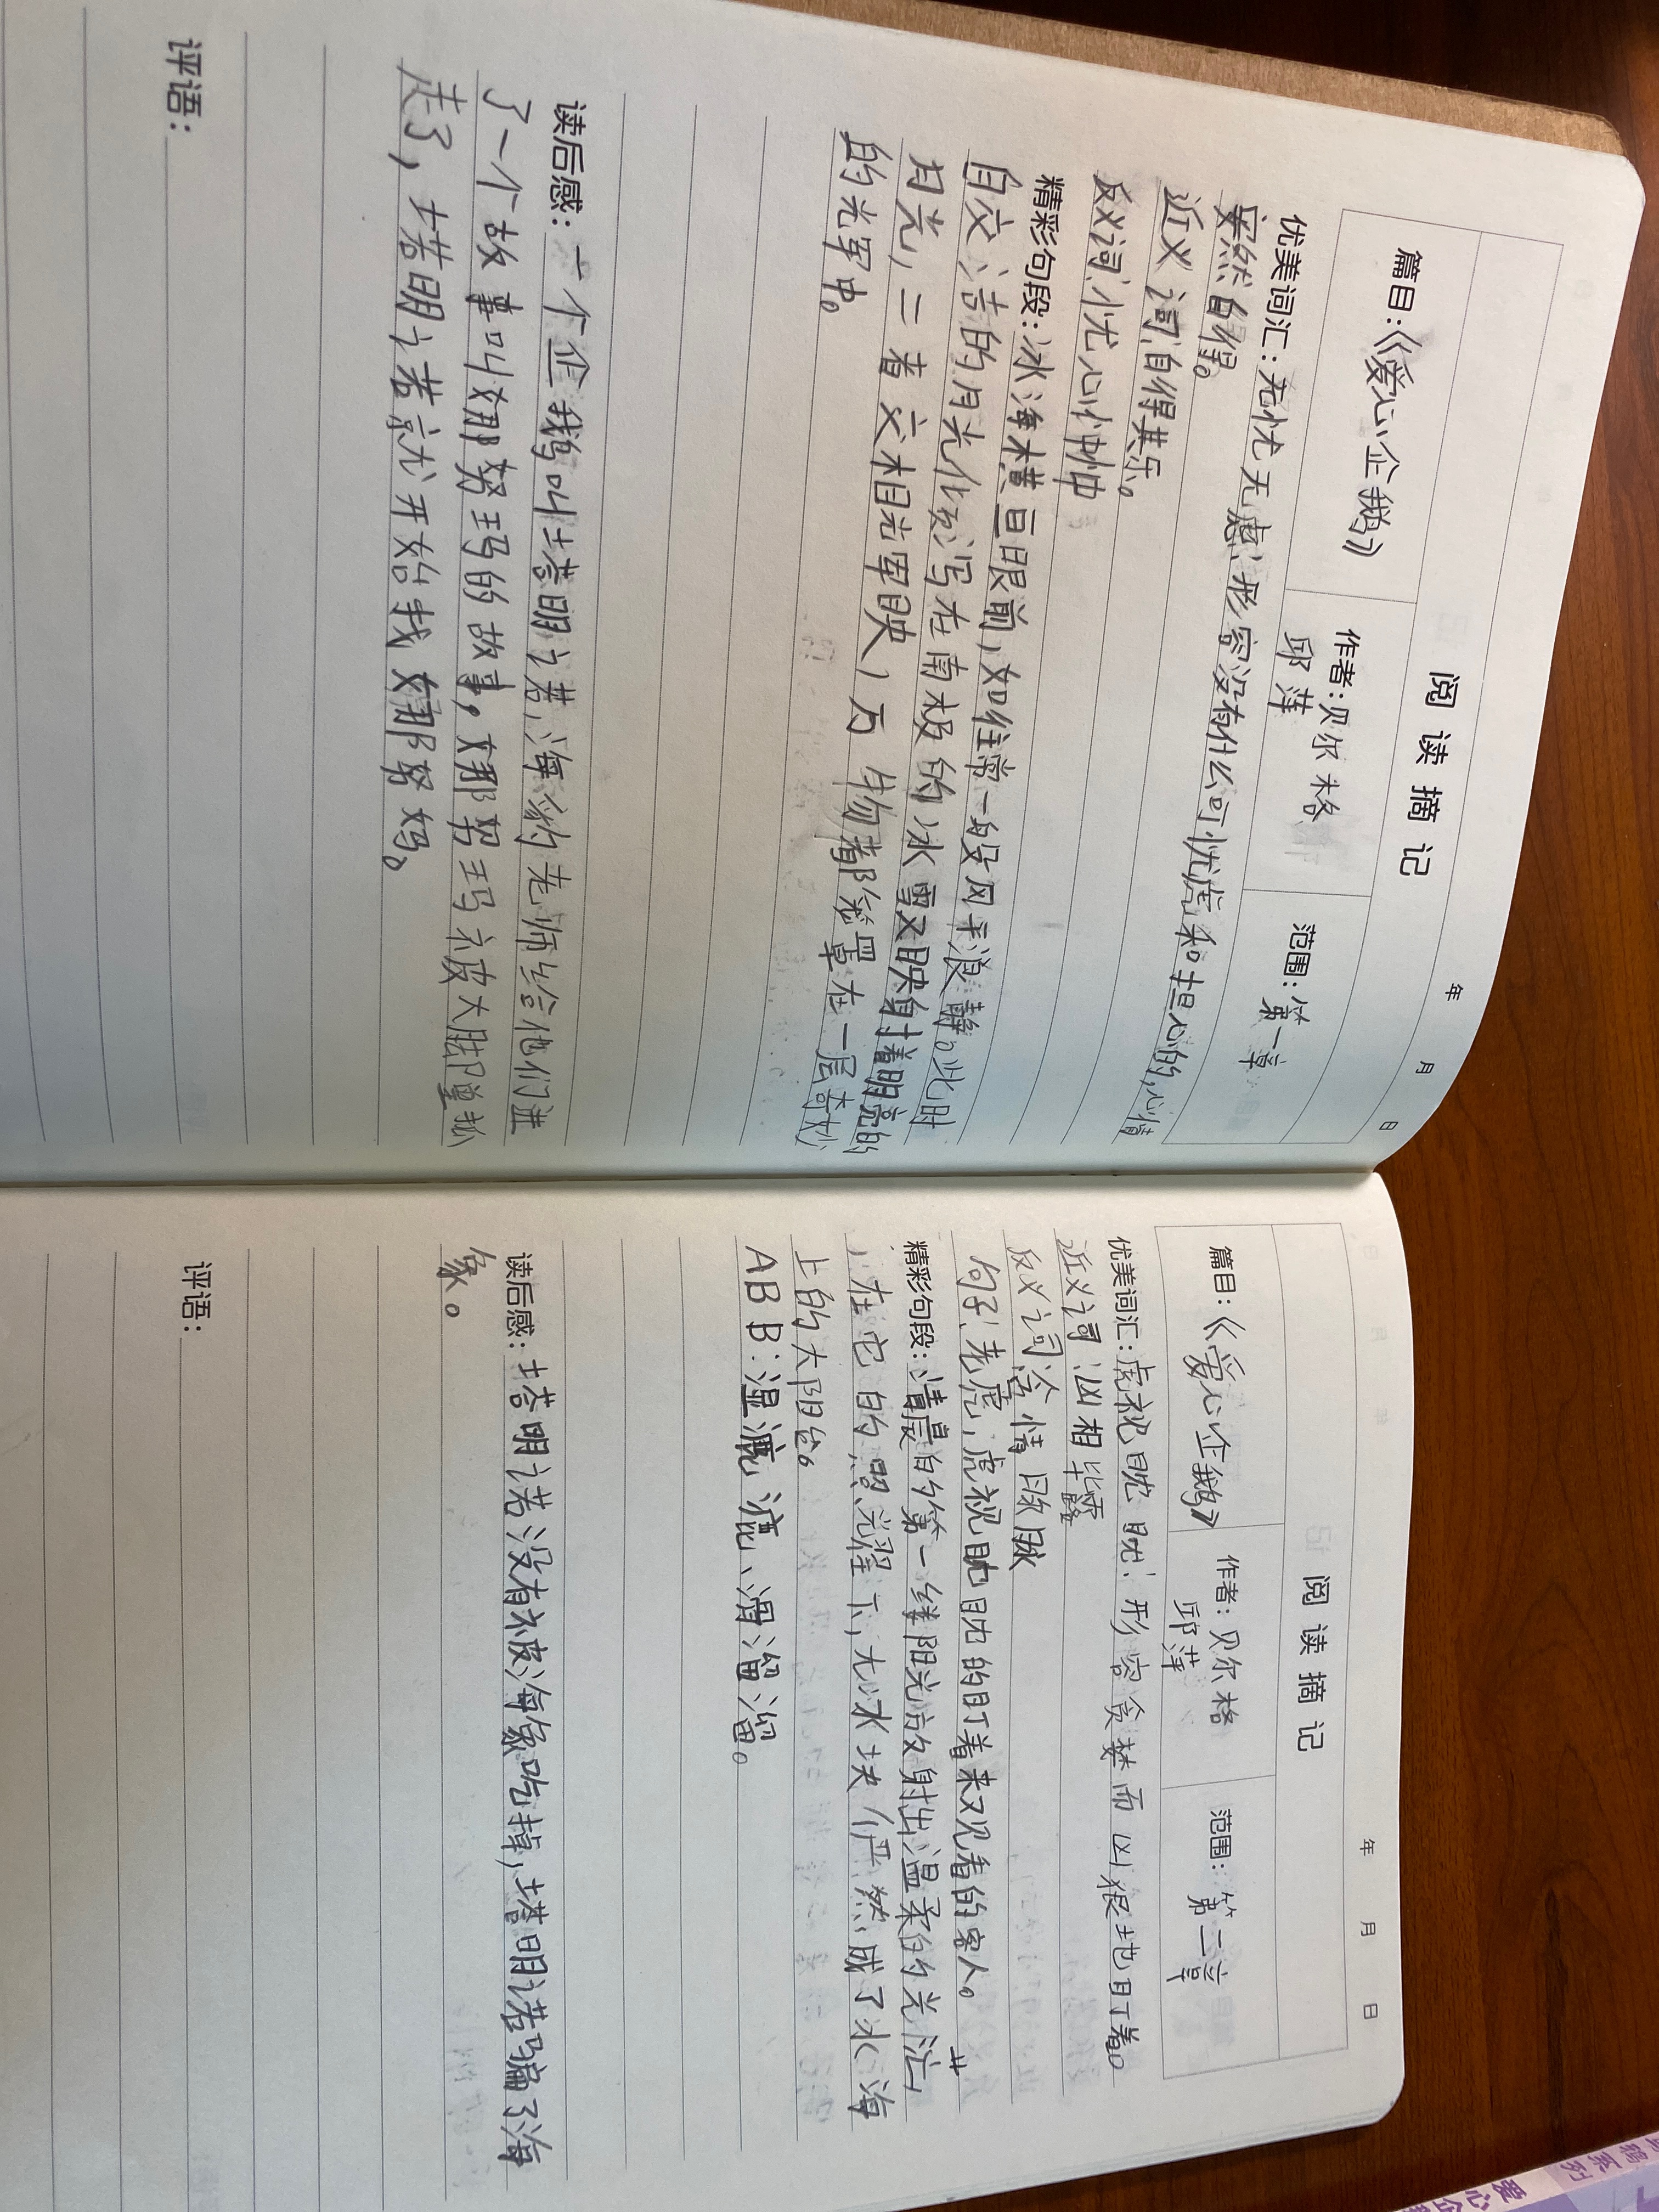 阅读摘记
年 月 日
篇目:《爱心企鹅》
作者:贝尔格
邱萍
范围:第一章
优美词汇:无忧无虑:形容没有什么可忧虑和担心的,心情
晏然自得。
近义词:自得其乐。
反义词:忧心忡忡
精彩句段:冰海横亘眼前,如往常一般风平浪静。此时
自交洁的月光倾泻在南极的冰雪又映射着明亮的
月光,二者交相光晖映,万物都笼罩在一层奇妙
的光晖中。
读后感:一个企鹅叫塔明诺,海豹老师给他们进
了一个故事叫娜努玛的故事,娜努玛被大贼
走了,塔明诺就开始找娜努妈。
评语:
阅读摘记
年 月 日
篇目:《爱心企鹅》
作者:贝尔格
邱萍
范围:第二章
优美词汇:虎视眈眈:形容贪婪而凶狠地盯着。
近义词:凶相毕露
反义词:含情脉脉
句子:老虎,虎视眈眈的盯着来观看的客人。
精彩句段:清晨的第一缕阳光放射出温柔的光芒
,在它的照耀下,大冰块俨然成了冰海
上的太阳台。
ABB:湿漉漉、滑溜溜。
读后感:塔明诺没有被海象吃掉,塔明诺骗了海
象。
评语: